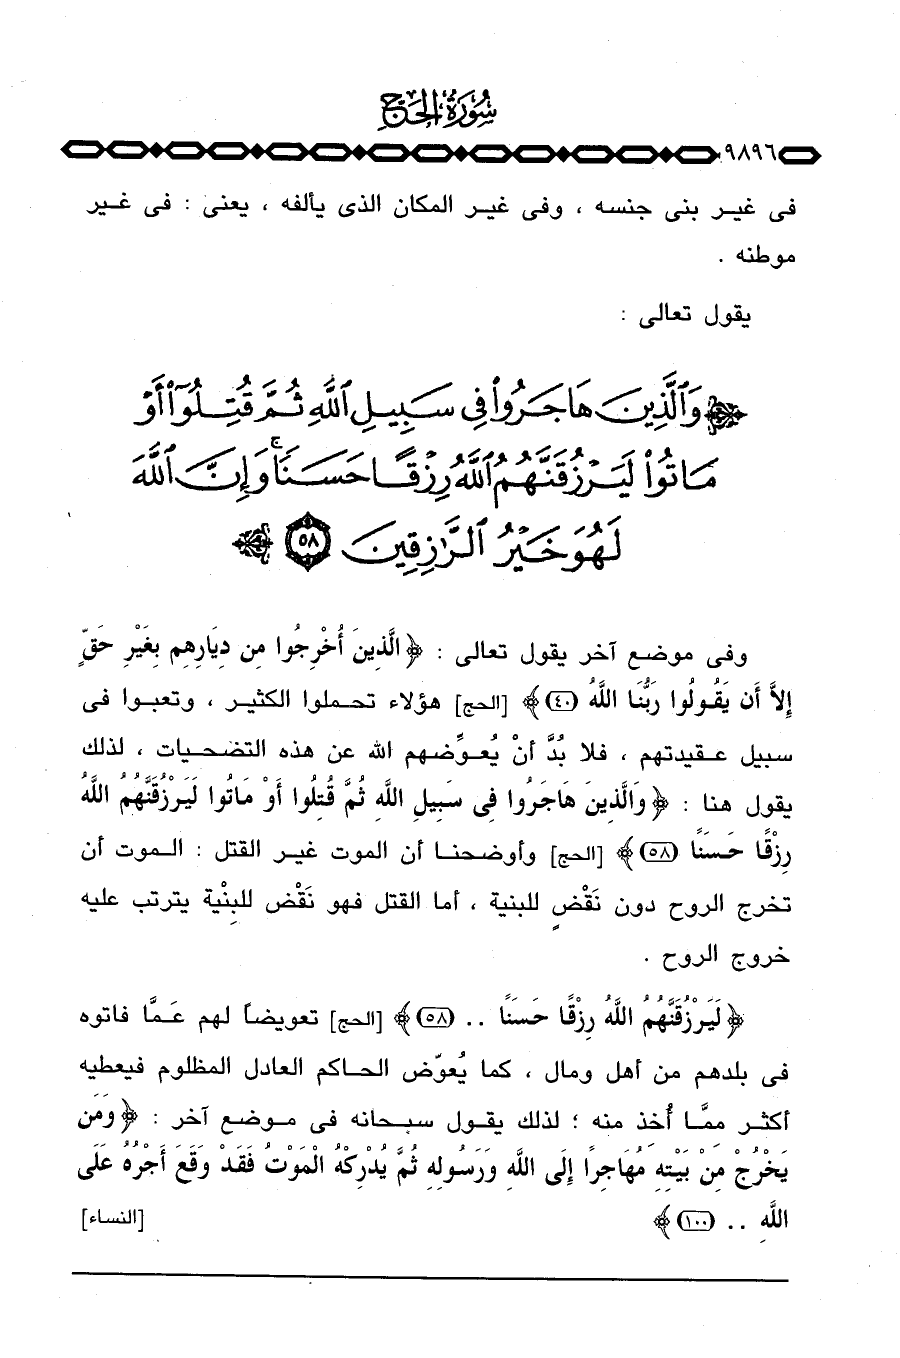 سُورَةُ الحَجِّ
٩٨٩٦
فى غير بنى جنسه ، وفى غير المكان الذى يألفه ، يعنى : فى غير
موطنه .
يقول تعالى :
﴿ وَٱلَّذِينَ هَاجَرُوا۟ فِى سَبِيلِ ٱللَّهِ ثُمَّ قُتِلُوٓا۟ أَوْ
مَاتُوا۟ لَيَرْزُقَنَّهُمُ ٱللَّهُ رِزْقًا حَسَنًا ۚ وَإِنَّ ٱللَّهَ
لَهُوَ خَيْرُ ٱلرَّٰزِقِينَ ٥٨ ﴾
وفى موضع آخر يقول تعالى : ﴿ الَّذِينَ أُخْرِجُوا مِن دِيَارِهِم بِغَيْرِ حَقٍّ
إِلاَّ أَن يَقُولُوا رَبُّنَا اللَّهُ (٤٠) ﴾ [الحج] هؤلاء تحملوا الكثير ، وتعبوا فى
سبيل عقيدتهم ، فلا بُدَّ أنْ يُعوِّضهم الله عن هذه التضحيات ، لذلك
يقول هنا : ﴿ وَالَّذِينَ هَاجَرُوا فِى سَبِيلِ اللَّهِ ثُمَّ قُتِلُوا أَوْ مَاتُوا لَيَرْزُقَنَّهُمُ اللَّهُ
رِزْقًا حَسَنًا (٥٨) ﴾ [الحج] وأوضحنا أن الموت غير القتل : الموت أن
تخرج الروح دون نَقْضٍ للبنية ، أما القتل فهو نَقْض للبِنْية يترتب عليه
خروج الروح .
﴿ لَيَرْزُقَنَّهُمُ اللَّهُ رِزْقًا حَسَنًا .. (٥٨) ﴾ [الحج] تعويضاً لهم عَمَّا فاتوه
فى بلدهم من أهل ومال ، كما يُعوّض الحاكم العادل المظلوم فيعطيه
أكثر ممَّا أُخذ منه ؛ لذلك يقول سبحانه فى موضع آخر : ﴿ وَمَن
يَخْرُجْ مِنْ بَيْتِهِ مُهَاجِرًا إِلَى اللَّهِ وَرَسُولِهِ ثُمَّ يُدْرِكْهُ الْمَوْتُ فَقَدْ وَقَعَ أَجْرُهُ عَلَى
اللَّهِ .. (١٠٠) ﴾ [النساء]